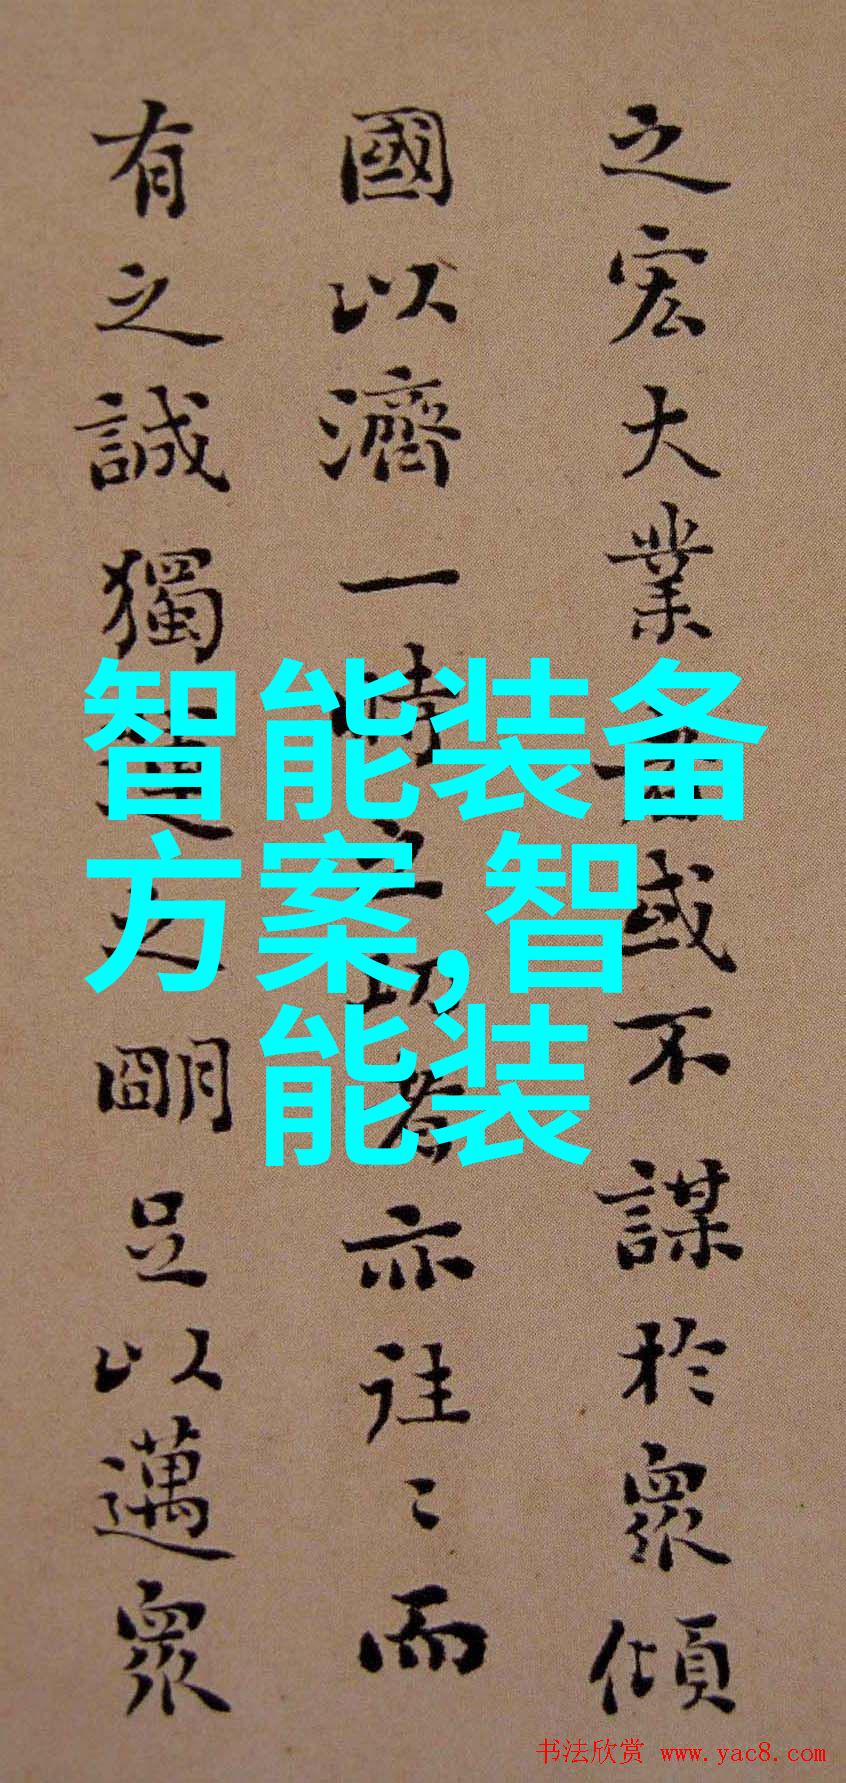 之宏大業或不謀於眾傾
國以濟一時之功者亦往〻而
有之誠獨之朙足以邁眾
智能装备
方案,智
能装
书法欣赏 www.yac8.com